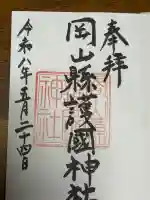 奉拝
岡山縣護國神社
令和八年五月二十四日